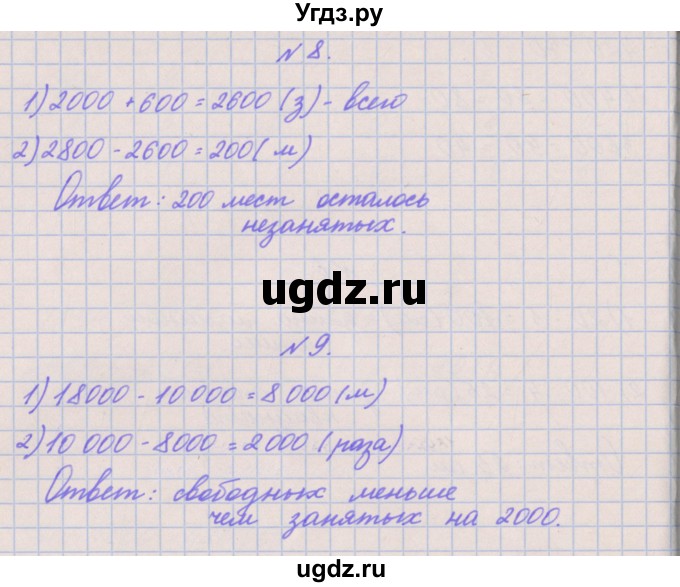 Угдз.ру
№ 8.
1) 2000 + 600 = 2600 (з) - всего
2) 2800 - 2600 = 200 (м)
Ответ: 200 мест осталось
незанятых.
ugdz.ru
№ 9.
1) 18000 - 10 000 = 8 000 (м)
2) 10 000 - 8000 = 2 000 (раза)
Ответ: свободных меньше
чем занятых на 2000.
ugdz.ru